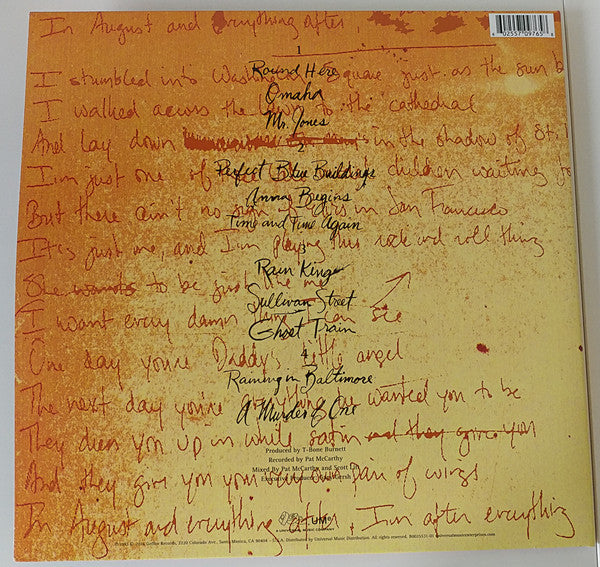 In August and everything after,
6 02557 09765 8
1
I stumbled into Washington Square just as the sun b
Round Here
Omaha
I walked across the lawn to the cathedral
Mr. Jones
And lay down in the shadow of St. J
2
I'm just one of these children waiting fo
Perfect Blue Buildings
Anna Begins
But there ain't no sign of this in San Francisco
Time and Time Again
It's just me, and I'm playing this rock and roll thing
3
Rain King
She wants to be just like me
Sullivan Street
I want every damn thing I can see
Ghost Train
4
One day you're Daddy's little angel
Raining in Baltimore
The next day you're everything he wanted you to be
A Murder of One
They dress you up in white satin and they give you
Produced by T-Bone Burnett
Recorded by Pat McCarthy
Mixed By Pat McCarthy and Scott Litt
Executive Producer Gary Gersh
And they give you your own pair of wings
In August and everything after, I'm after everything
UMe
Geffen Records, 2220 Colorado Ave., Santa Monica, CA 90404 - U.S.A. Distributed by Universal Music Distribution. All rights reserved. B0025531-01 universalmusicenterprises.com